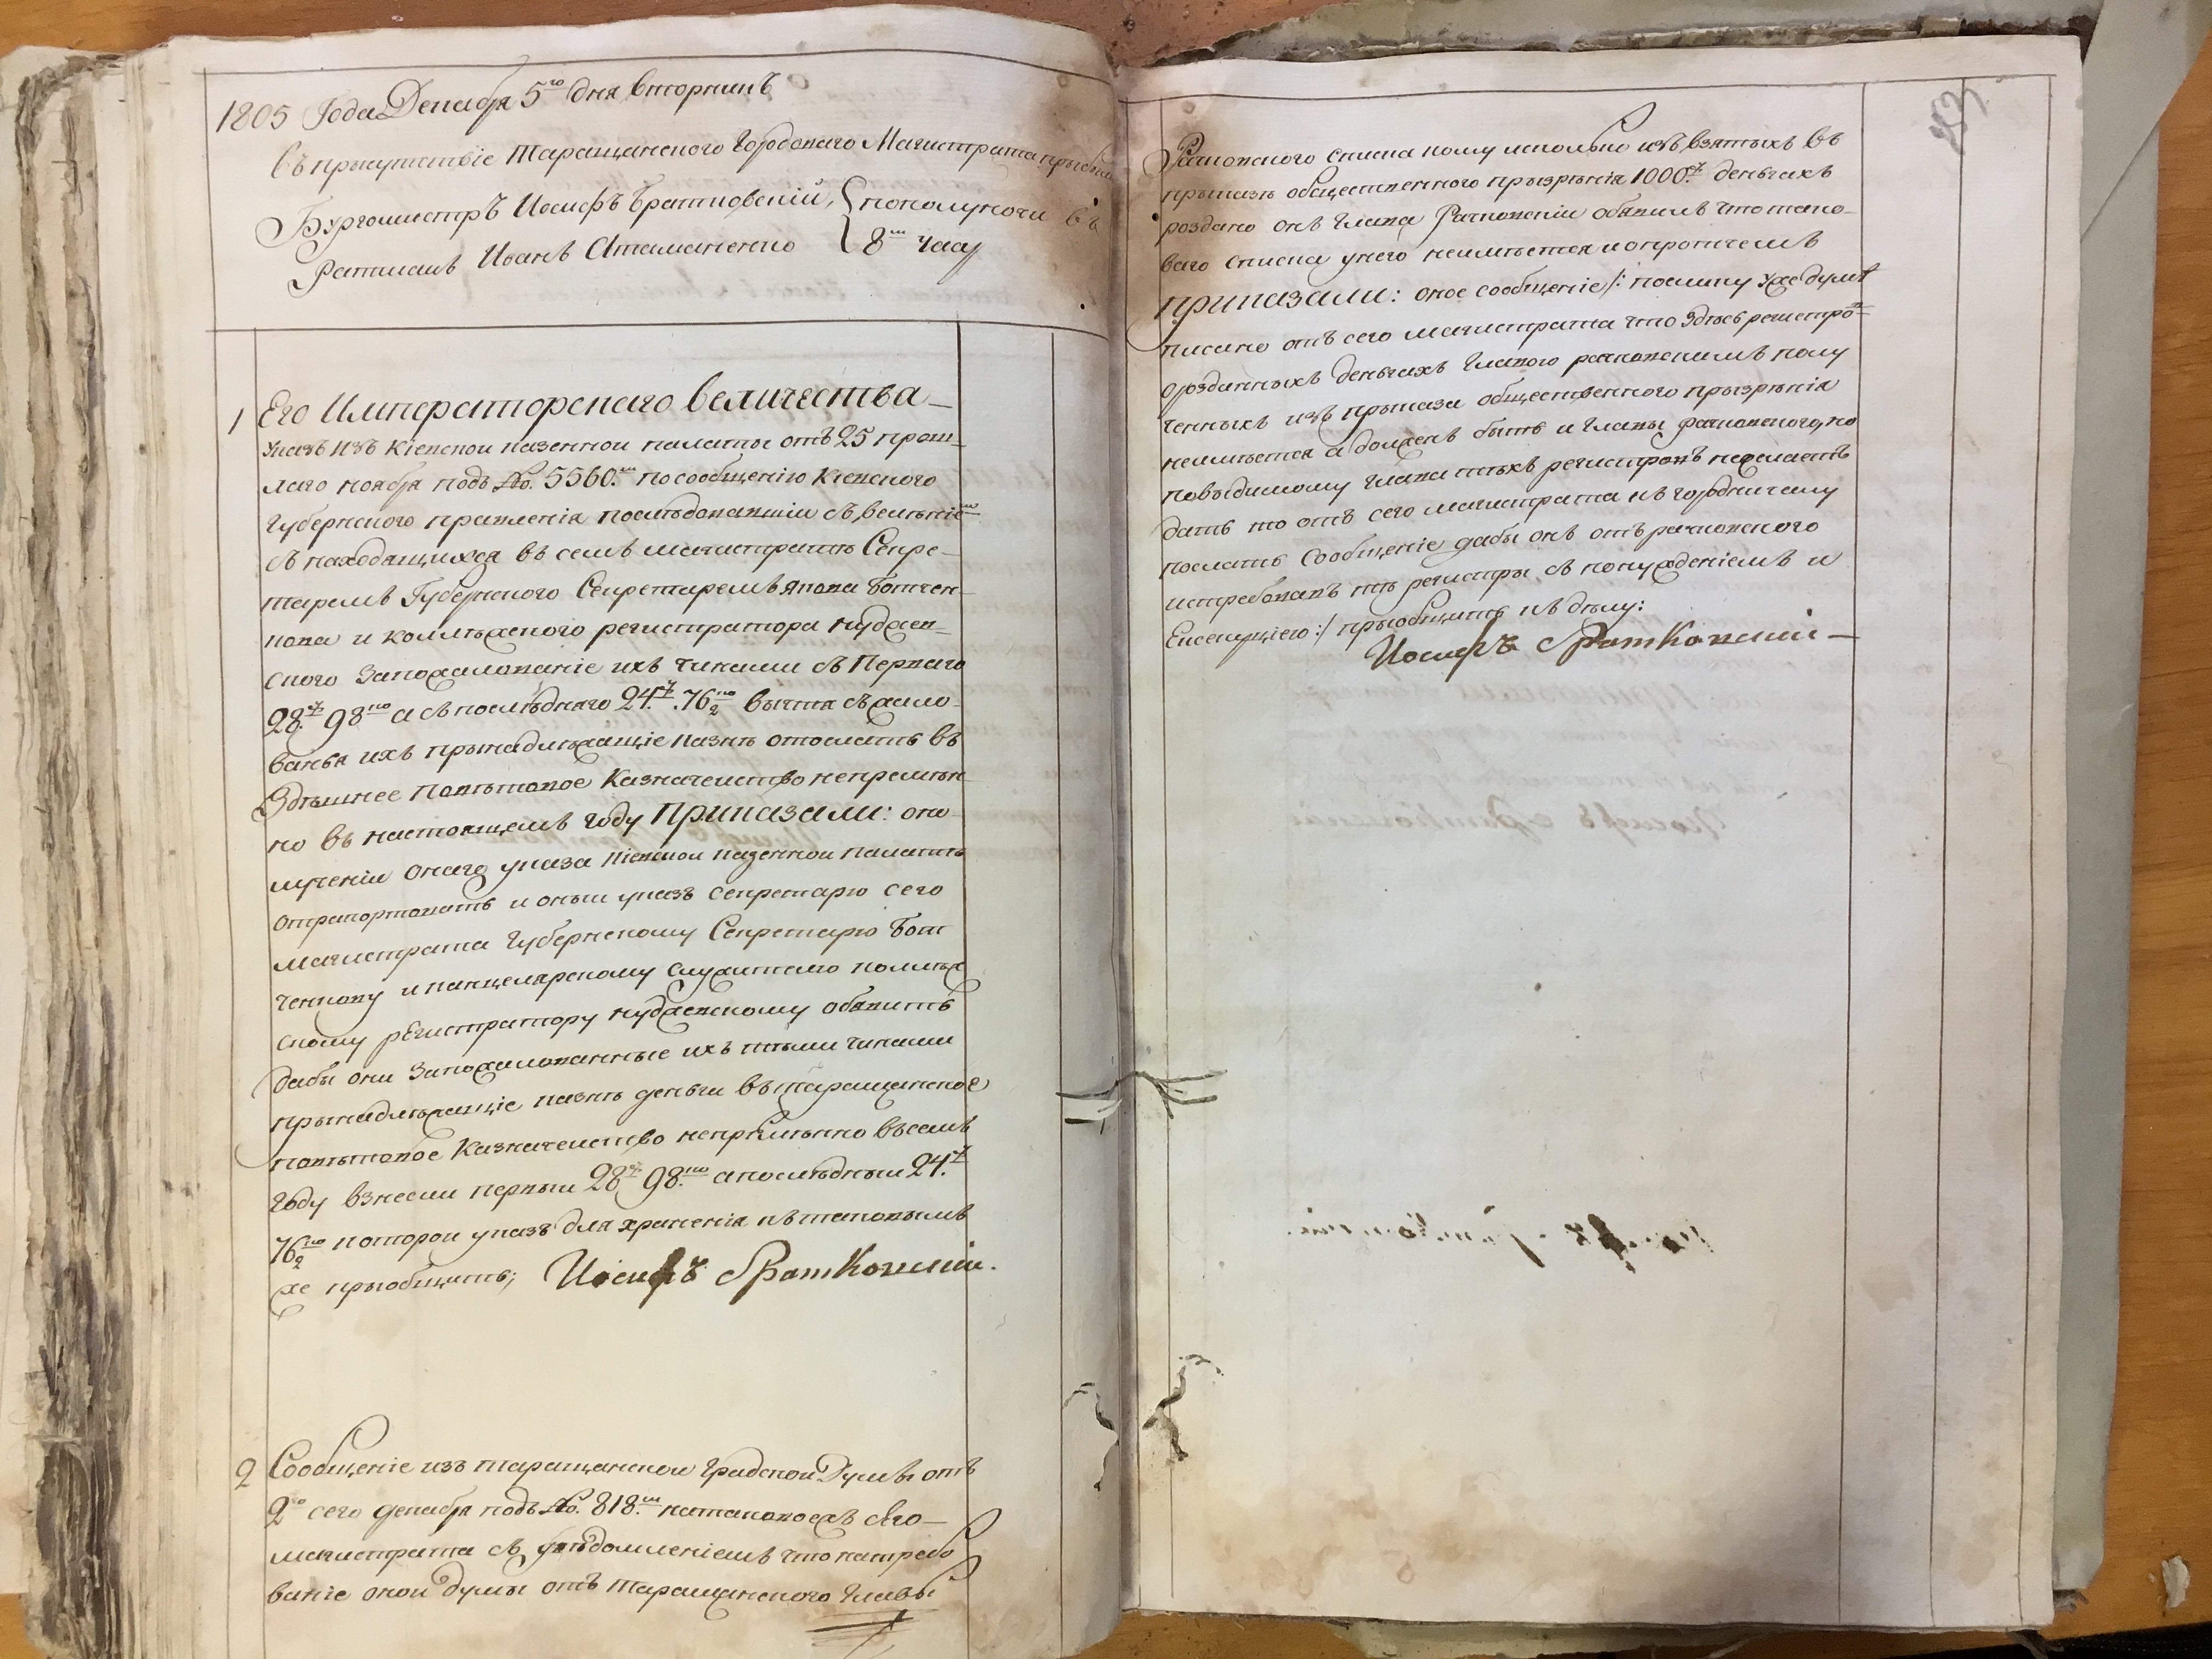 1805 Года Декабря 5го дня вторникъ
въ присутствіе таращанского городового Магистрата
Бургомистръ Иосифъ Братковскій, пополуночи въ
Ратманъ Иванъ Атаманенко 8мъ часу
1 Его Императорскаго величества
указъ изъ кіевской казенной палаты отъ 25 прош-
лаго ноября подъ No. 5560мъ по сообщенію кіевского
губернского правленія последовавшіи съ веленіемъ
съ находящихся въ семъ магистрате Секре-
таремъ Губернского Секретаремъ Якова Ботчен-
кова и коллежского регистратора кудаев-
ского Запожалованіе ихъ чинами съ Перваго
28ру 98ко а съ последнаго 24.ру 76ко 2 вычта съ жало-
ванья ихъ прынадлежащіе казне отослать въ
Здешнее Поветовое Казначейство непремен-
но въ настоящемъ году приказали: опо-
лученіи онаго указа кіевской казенной палате
отрапортовать и оный указъ секретарю сего
магистрата губернскому Секретарю Бот
ченкову и канцелярскому служителю коллеж
скому регистратору кудаевскому объявить
дабы они Запожалованные ихъ теми чинами
прынадлежащіе казне деньги въ таращанское
поветовое Казначейство непременно въ семъ
году взнесли первый 28ру 98.ко а последный 24.ру
76ко 2 которой указъ для храненія къ таковымъ
же пріобщить; Иосифъ Братковскій.
2 Сообщеніе изъ таращанской градской Думы отъ
2го сего декабря подъ No. 818.мъ на таковое жъ сего
магистрата съ уведомленіемъ что на требо
ваніе оной думы отъ таращанского главы
Рачковского списка кому исколько изъ взятыхъ въ
прыказе общественного прызренія 1000.ру деньгахъ
роздано онъ глава Рачковскій объявилъ что тако-
ваго списка у него неимеется и о протчемъ
приказали: оное сообщеніе /: поелику уже думе
писано отъ сего магистрата что Здесь регистро
о розданныхъ деньгахъ главою рачковскимъ кому
ченныхъ изъ прыказа общественного прызренія
неимеется а долженъ быть и главы рачковского, но
повыдимому глава техъ регистровъ нежелаетъ
дать то отъ сего магистрата къ городничему
послать сообщеніе дабы онъ отъ рачковского
истребовавъ те регистры съ понужденіемъ и
:/ пріобщить къ делу:
Иосифъ Братковскій